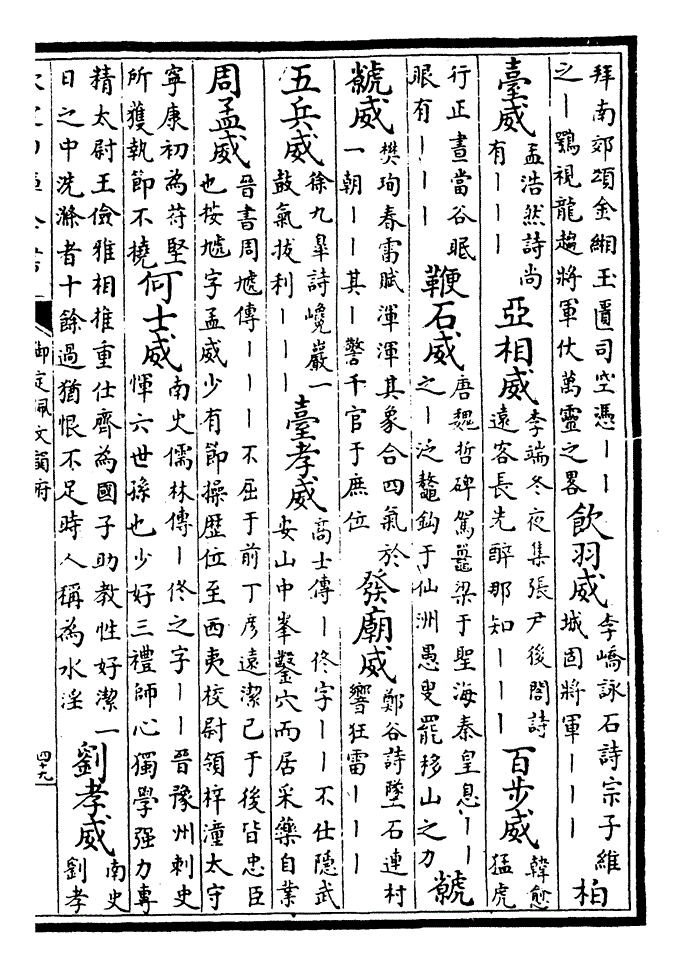 拜南郊頌金緗玉匱司空憑丨丨
之丨鶚視龍趨將軍仗萬靈之畧
飲羽威
李嶠詠石詩宗子維
城固將軍丨丨丨
柏
臺威
孟浩然詩尚
有丨丨丨
亞相威
李端冬夜集張尹後閤詩
遠客長先醉那知丨丨丨
百步威
韓愈
猛虎
行正晝當谷眠
眼有丨丨丨
鞭石威
唐魏哲碑駕黿梁于聖海秦皇息丨丨
之丨泛鼇鈎于仙洲愚叟罷移山之力
虩
虩威
樊珣春雷賦渾渾其象合四氣於
一朝丨丨其丨警千官于庶位
發廟威
鄭谷詩墜石連村
響狂雷丨丨丨
五兵威
徐九臯詩巉巖一
鼓氣拔利丨丨丨
臺孝威
高士傳丨佟字丨丨不仕隱武
安山中峯鑿穴而居采藥自業
周孟威
晉書周虓傳丨丨丨不屈于前丁彥遠潔己于後皆忠臣
也按虓字孟威少有節操歷位至西夷校尉領梓潼太守
寧康初為苻堅
所獲執節不撓
何士威
南史儒林傳丨佟之字丨丨晉豫州刺史
惲六世孫也少好三禮師心獨學强力專
精太尉王儉雅相推重仕齊為國子助教性好潔一
日之中洗滌者十餘過猶恨不足時人稱為水淫
劉孝威
南史
劉孝
御定佩文韻府